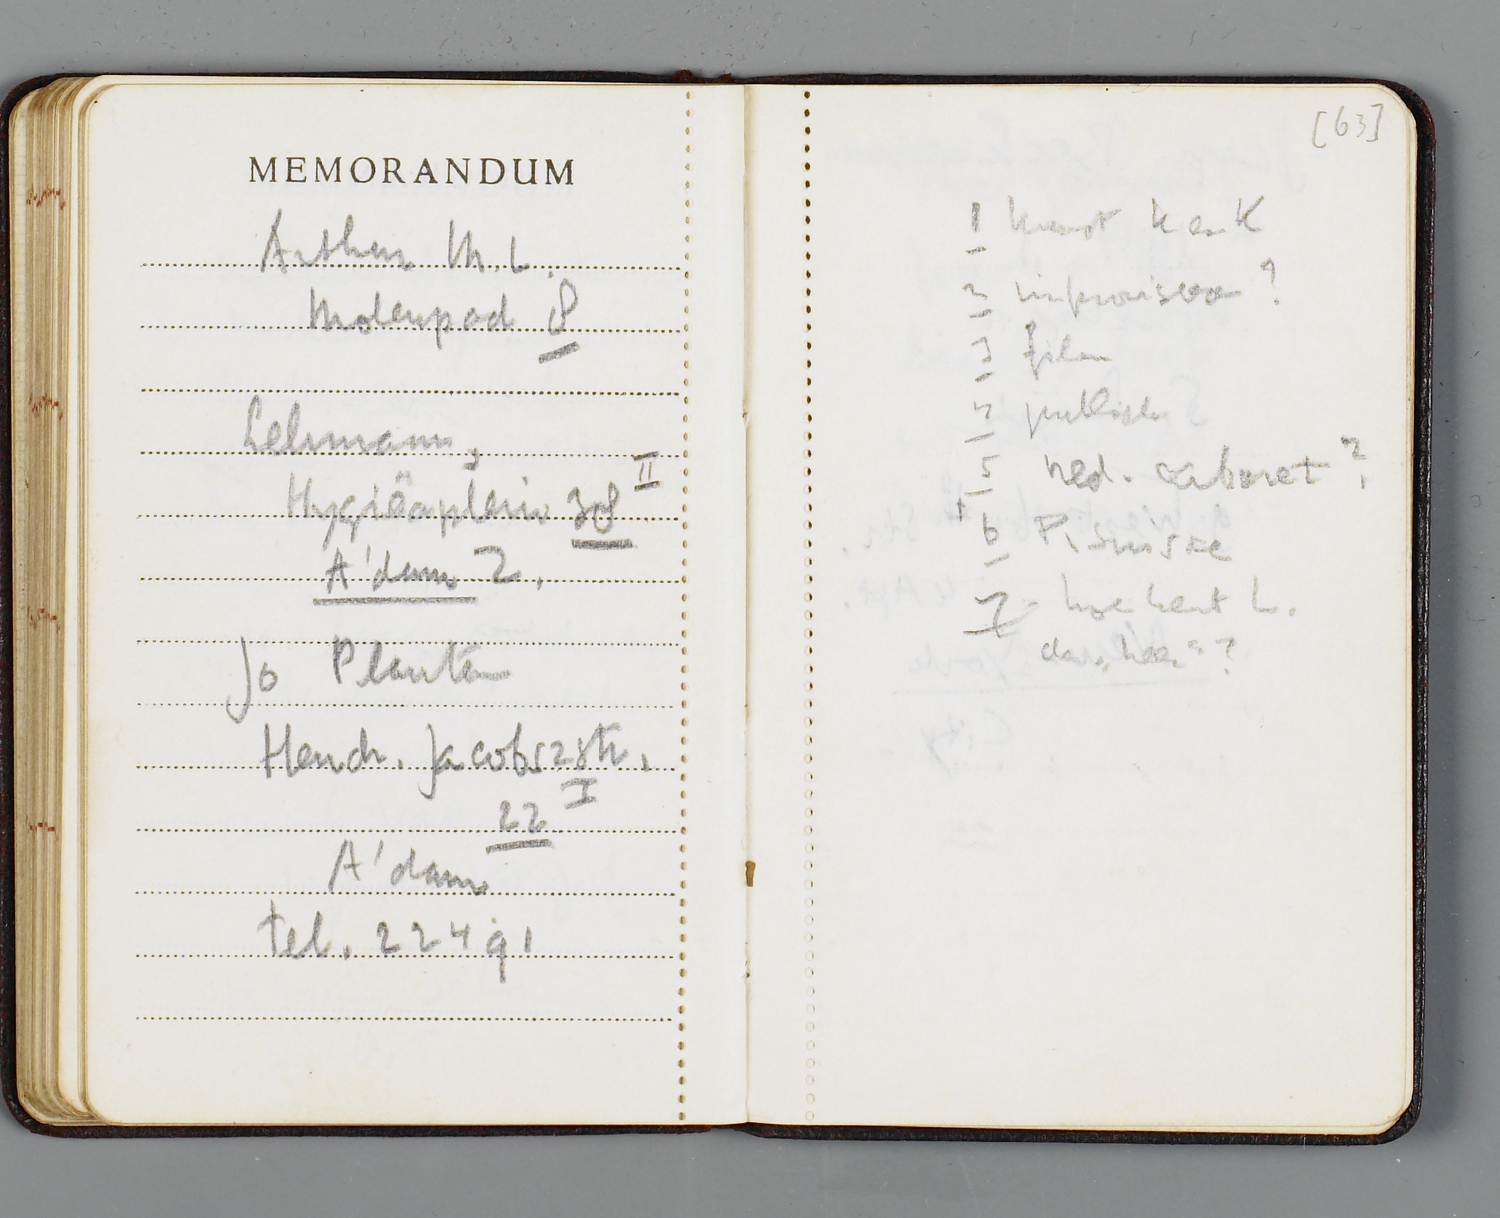 MEMORANDUM
Arthur M. L.
Molenpad 8
Lehmann,
Hygiëaplein 38 II
A'dam Z.
Jo Planten
Hendr. Jacobszstr.
22 I
A'dam
tel. 22491
[63]
1 kunst
2 improviseren ?
3 film
4 publiek
5 ned. cabaret ?
6 Pisuisse
7 L.
?